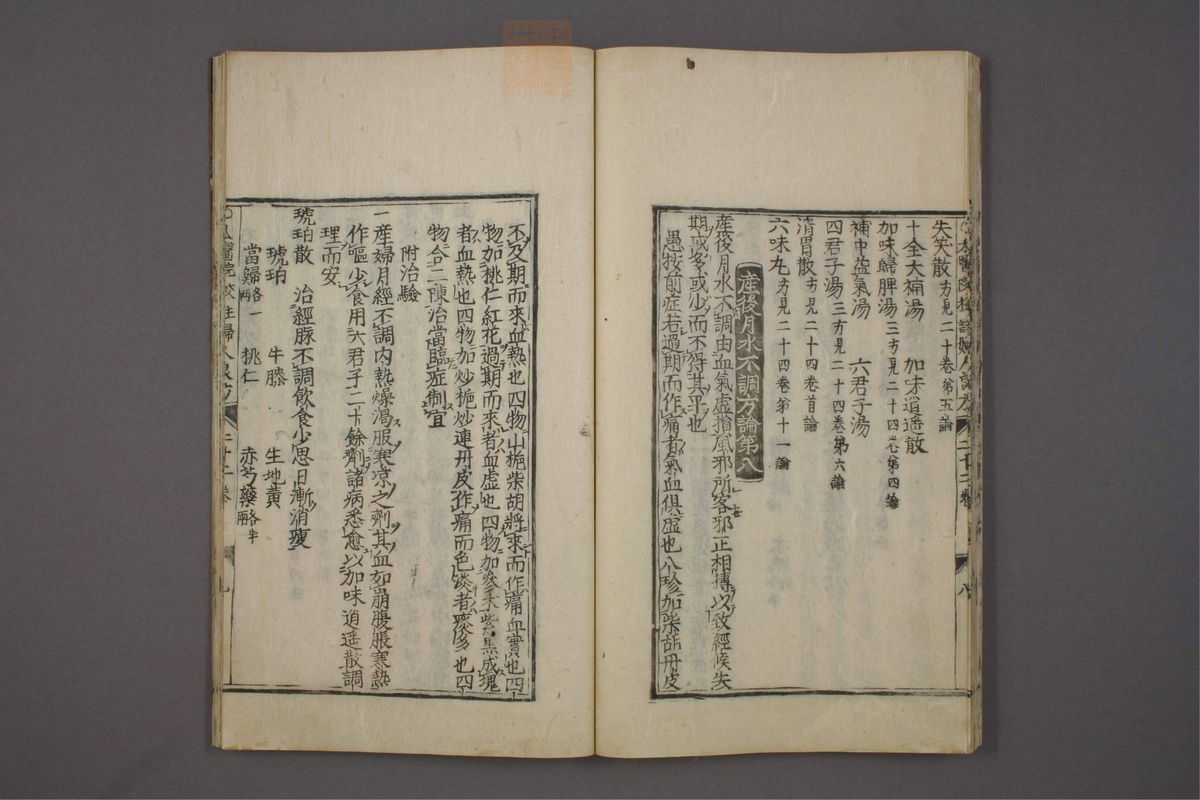 失笑散方見二十卷第五論
十全大補湯　加味逍遥散
加味歸脾湯三方見二十四卷第四論
補中益氣湯　六君子湯
四君子湯三方見二十四卷第六論
清胃散方見二十四卷首論
六味丸方見二十四卷第十一論
産後月水不調方論第八
産後月水不調由血氣虚損風邪所客邪正相搏以致經候失
期或多或少而不得其平也
愚按前症若過期而作痛者氣血俱虚也八珍加柴胡丹皮
不及期而來血熱也四物山梔柴胡將來而作痛血實也四
物加桃仁紅花過期而來者血虚也四物加參朮紫黒成塊
者血熱也四物加炒梔炒連丹皮作痛而色淡者痰多也四
物合二陳治當臨症制宜
附治驗
一産婦月經不調内熱燥渇服寒凉之劑其血如崩腹脹寒熱
作嘔少食用六君子二十餘劑諸病悉愈以加味逍遥散調
理而安
琥珀散　治經脉不調飲食少思日漸消瘦
琥珀　牛膝　生地黄
當歸各一兩　桃仁　赤芍藥各半兩
醫院校註婦人良方　二十二卷　九